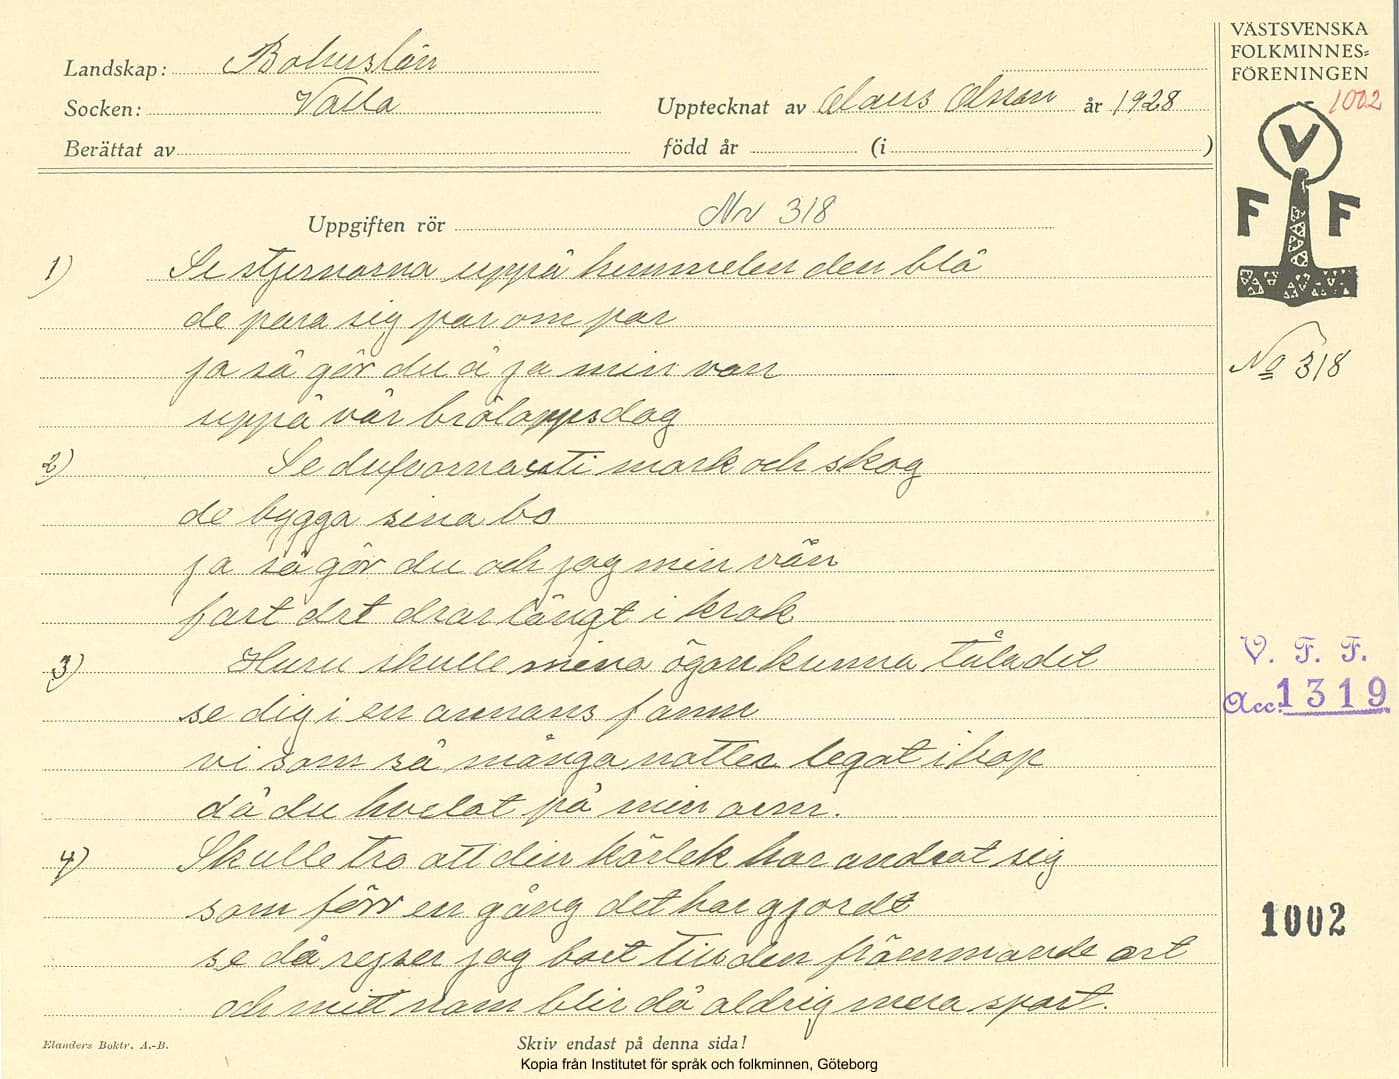 Landskap: Bohuslän
Socken: Valla
Upptecknat av Olaus Olsson år 1928
Berättat av
född år (i )
VÄSTSVENSKA
FOLKMINNES=
FÖRENINGEN
1002
V
F F
Uppgiften rör Nr 318
1) Se stjernorna uppå himmelen den blå
de para sig par om par
ja så gör du å ja min van
uppå vår brölappsdag
2) Se dufvorna uti mark och skog
de bygga sina bo
ja så gör du och jag min vän
fast det drar långt i krok
3) Huru skulle mina ögon kunna tåla det
se dig i en annans famn
vi som så många natter legat ihop
då du hvelat på min arm.
4) Skulle tro att din kärlek har andrat sig
som förr en gång det har gjordt
se då rejser jag bort till den främmande ort
och mitt namn blir då aldrig mera sport.
No 318
V. F. F.
Acc. 1319
1002
Elanders Boktr. A.-B.
Skriv endast på denna sida!
Kopia från Institutet för språk och folkminnen, Göteborg